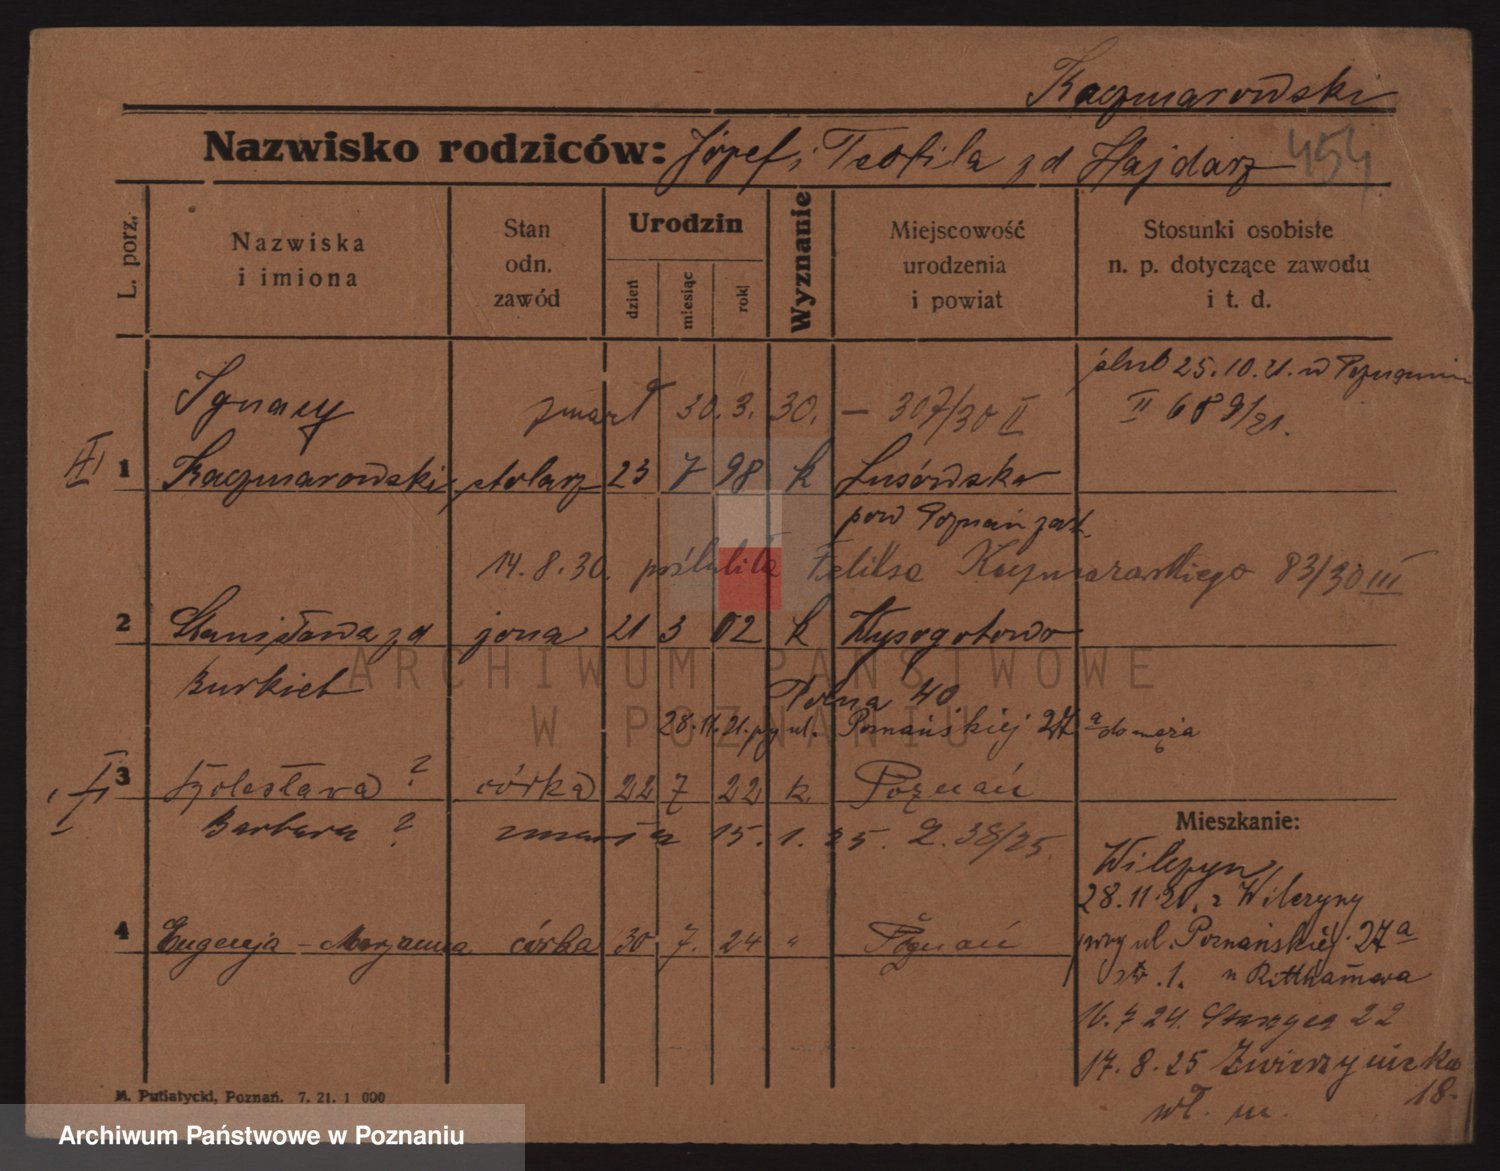 Kaczmarowski
Nazwisko rodziców: Józef i Teofila zd Hajdarz 454
L. porz.
Nazwiska
i imiona
Stan
odn.
zawód
Urodzin
dzień
miesiąc
rok
Wyznanie
Miejscowość
urodzenia
i powiat
Stosunki osobiste
n. p. dotyczące zawodu
i t. d.
ślub 25.10.21. w Poznaniu
II 689/21.
Ignacy zmarł 30.3.30. — 307/30 II
1 Kaczmarowski stolarz 23 7 98 k Lusówko
pow Poznań zach.
14.8.30. poślubiła Feliksa Kaczmarowskiego 83/30 III
2 Stanisława zd żona 21 3 02 k Wysogotowo
Burkiet
Polna 40
28.11.21. przy ul. Poznańskiej 27 a do męża
3 Bolesława ? córka 22 7 22 k. Poznań
Barbara ? zmarła 15.1.25. 2.38/25.
Mieszkanie:
Wilczyn
28.11.21. z Wilczyny
przy ul. Poznańskiej 27 a
str. 1.
4 Eugenja - Marjanna córka 30 7. 24 " Poznań
16.7 24. 22
17.8.25 Zwierzyniecka
18.
ARCHIWUM PAŃSTWOWE
W POZNANIU
M. Putiatycki, Poznań. 7. 21. 1 000
Archiwum Państwowe w Poznaniu